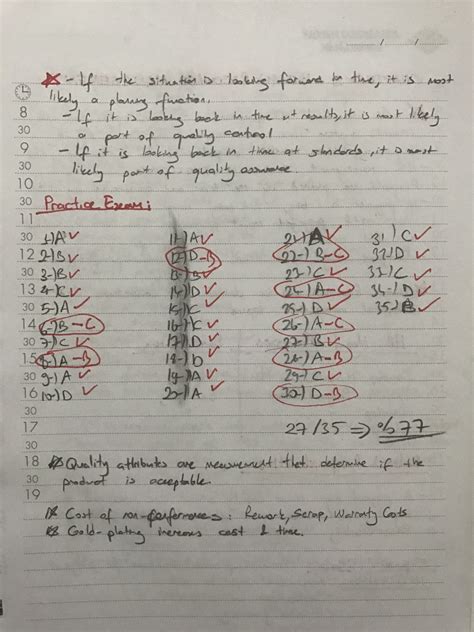 - If the situation is looking forward in time, it is most
likely a planning function.
- If it is looking back in time at results, it is most likely
a part of quality control
- If it is looking back in time at standards, it is most
likely part of quality assurance.
8
30
9
30
10
30
11
30
12
30
13
30
14
30
15
30
16
30
17
30
18
30
19
Practice Exam:
1-) A ✓
2-) B ✓
3-) B ✓
4-) C ✓
5-) A ✓
6-) B - C
7-) C ✓
8-) A - B
9-) A ✓
10-) D ✓
11-) A ✓
12-) D - B
13-) B ✓
14-) D ✓
15-) C ✓
16-) C ✓
17-) A ✓
18-) D ✓
19-) A ✓
20-) A ✓
21-) A ✓
22-) B - C
23-) C ✓
24-) A - C
25-) D ✓
26-) A - C
27-) B ✓
28-) A - B
29-) C ✓
30-) D - B
31-) C ✓
32-) D ✓
33-) C ✓
34-) D ✓
35-) B ✓
27/35 => %77
Quality attributes are measurement that determine if the
product is acceptable.
Cost of non-performances: Rework, Scrap, Warranty Costs
Gold-plating increases cost & time.